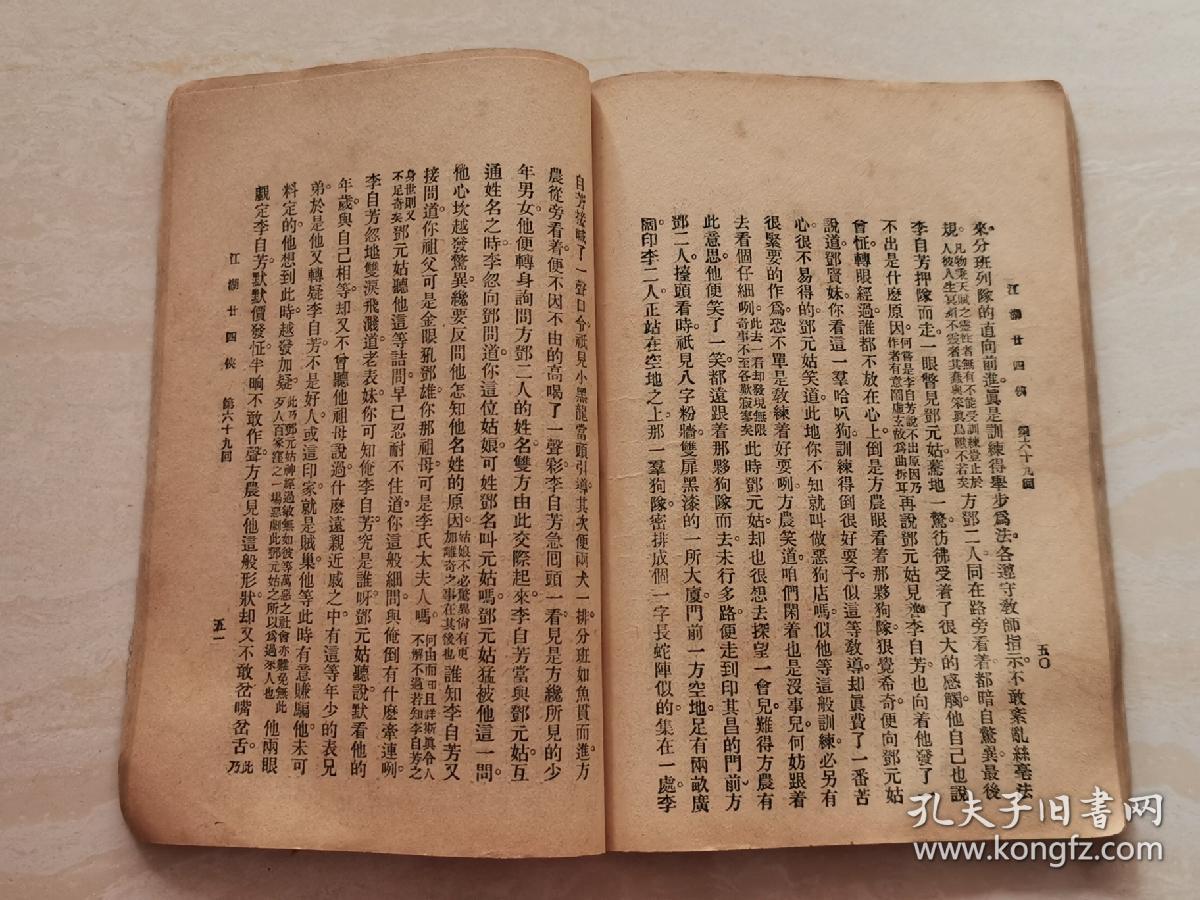 江湖廿四俠　第六十九囘　五〇
來分班列隊的直向前進。眞是訓練得舉步爲法。各遵守敎師指示。不敢紊亂絲毫法
規。凡物秉天賦之靈性者無有不能受訓練豈止於人彼人生冥頑不靈者其蠢與笨眞鳥獸不若矣方鄧二人同在路旁看着。都暗自驚異。最後
李自芳押隊而走。一眼瞥見鄧元姑。驚地一驚。彷彿受着了很大的感觸。他自己也說
不出是什麽原因。何嘗是李自芳說不出原因乃作者有意鬧虛玄故爲曲折耳再說鄧元姑見進李自芳也向着他發了
曾怔。轉眼經過。誰都不放在心上。倒是方農眼看着那夥狗隊。狠覺希奇。便向鄧元姑
說道。鄧賢妹你看這一羣哈叭狗。訓練得倒很好耍子。似這等敎導。却眞費了一番苦
心。很不易得的。鄧元姑笑道。此地你不知就叫做惡狗店嗎。似他等這般訓練。必另有
很緊要的作爲。恐不單是敎練着好耍咧。方農笑道。咱們閑着也是沒事兒。何妨跟着
去看個仔細咧。此去一看却發現無限奇事不至各歎寂寥矣此時鄧元姑却也很想去探望一會兒。難得方農有
此意思。他便笑了一笑。都遠跟着那夥狗隊而去。未行多路。便走到印其昌的門前。方
鄧二人擡頭看時。祇見八字粉牆。雙扉黑漆的一所大廈。門前一方空地。足有兩畝廣
闊。印李二人正站在空地之上。那一羣狗隊密排成個一字長蛇陣似的。集在一處。李
自芳接喊了一聲口令。祇見小黑龍當頭引導。其次便兩犬一排。分班如魚貫而進。方
農從旁看着。便不因不由的高喝了一聲彩。李自芳急囘頭一看。見是方纔所見的少
年男女。他便轉身詢問方鄧二人的姓名。雙方由此交際起來。李自芳當與鄧元姑互
通姓名之時。李忽向鄧問道。你這位姑娘可姓鄧名叫元姑嗎。鄧元姑猛被他這一問。
他心坎越發驚異。纔要反問他怎知他名姓的原因。姑娘不必驚異尙有更加離奇之事在其後也誰知李自芳又
接問道。你祖父可是金眼猊鄧雄。你那祖母可是李氏太夫人嗎。何由而可且詳斯眞令人不解不過若知李自芳之
身世則又不足奇矣鄧元姑聽他這等詰問。早已忍耐不住道。你這般細問。與俺倒有什麽牽連咧。
李自芳忽地雙淚飛濺道。老表妹你可知俺李自芳究是誰呀。鄧元姑聽說。默看他的
年歲與自己相等。却又不曾聽他祖母說過什麽遠親近戚之中。有這等年少的表兄
弟。於是他又轉疑李自芳不是好人。或這印家就是賊巢。他等此時有意賺騙。他未可
料定的。他想到此時。越發加疑。此乃鄧元姑神經過敏無如彼等萬惡之社會亦難免無此歹人百家窪之一場惡劇此鄧元姑之所以爲過來人也他兩眼
覷定李自芳。默默價發怔。半晌不敢作聲。方農見他這般形狀。却又不敢岔嘴岔舌。此乃
江湖廿四俠　第六十九囘　五一
孔夫子旧书网
www.kongfz.com